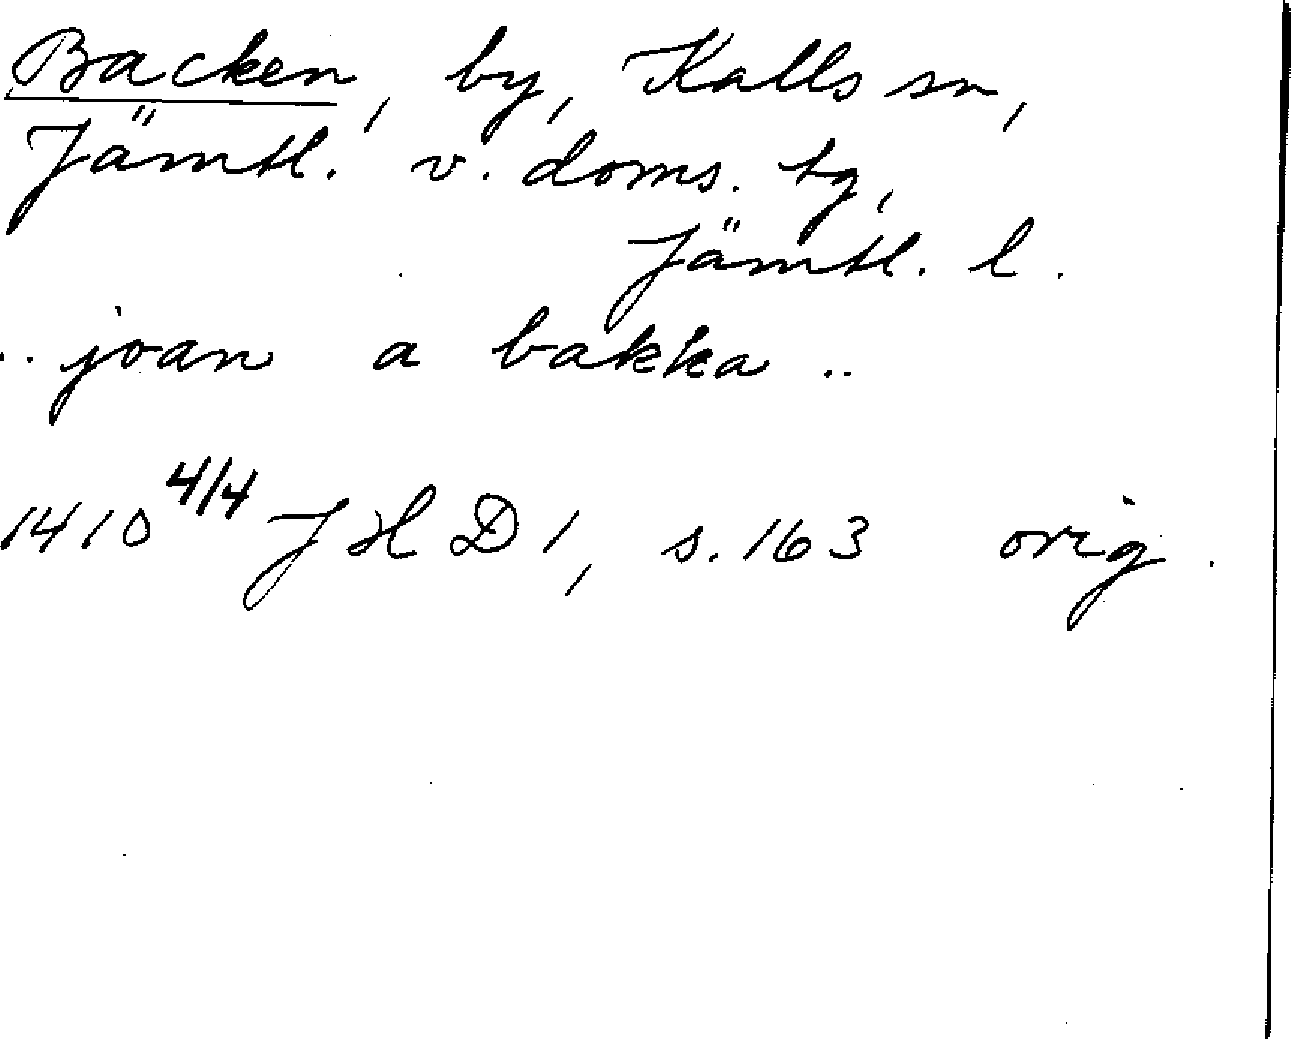 Backen, by, Kalls sn,
Jämtl. v. doms. tg,
Jämtl. l.
.. joan a bakka ..
1410 4/4 JHD 1, s. 163 orig.